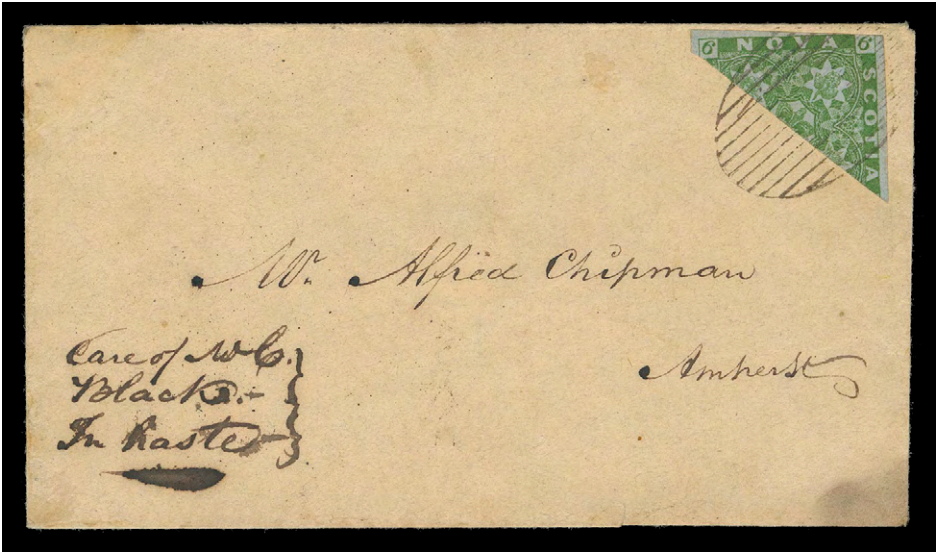 6 NOVA 6
SCOTIA
Mr. Alfred Chipman
Amherst
Care of W C.
Black.-
In haste